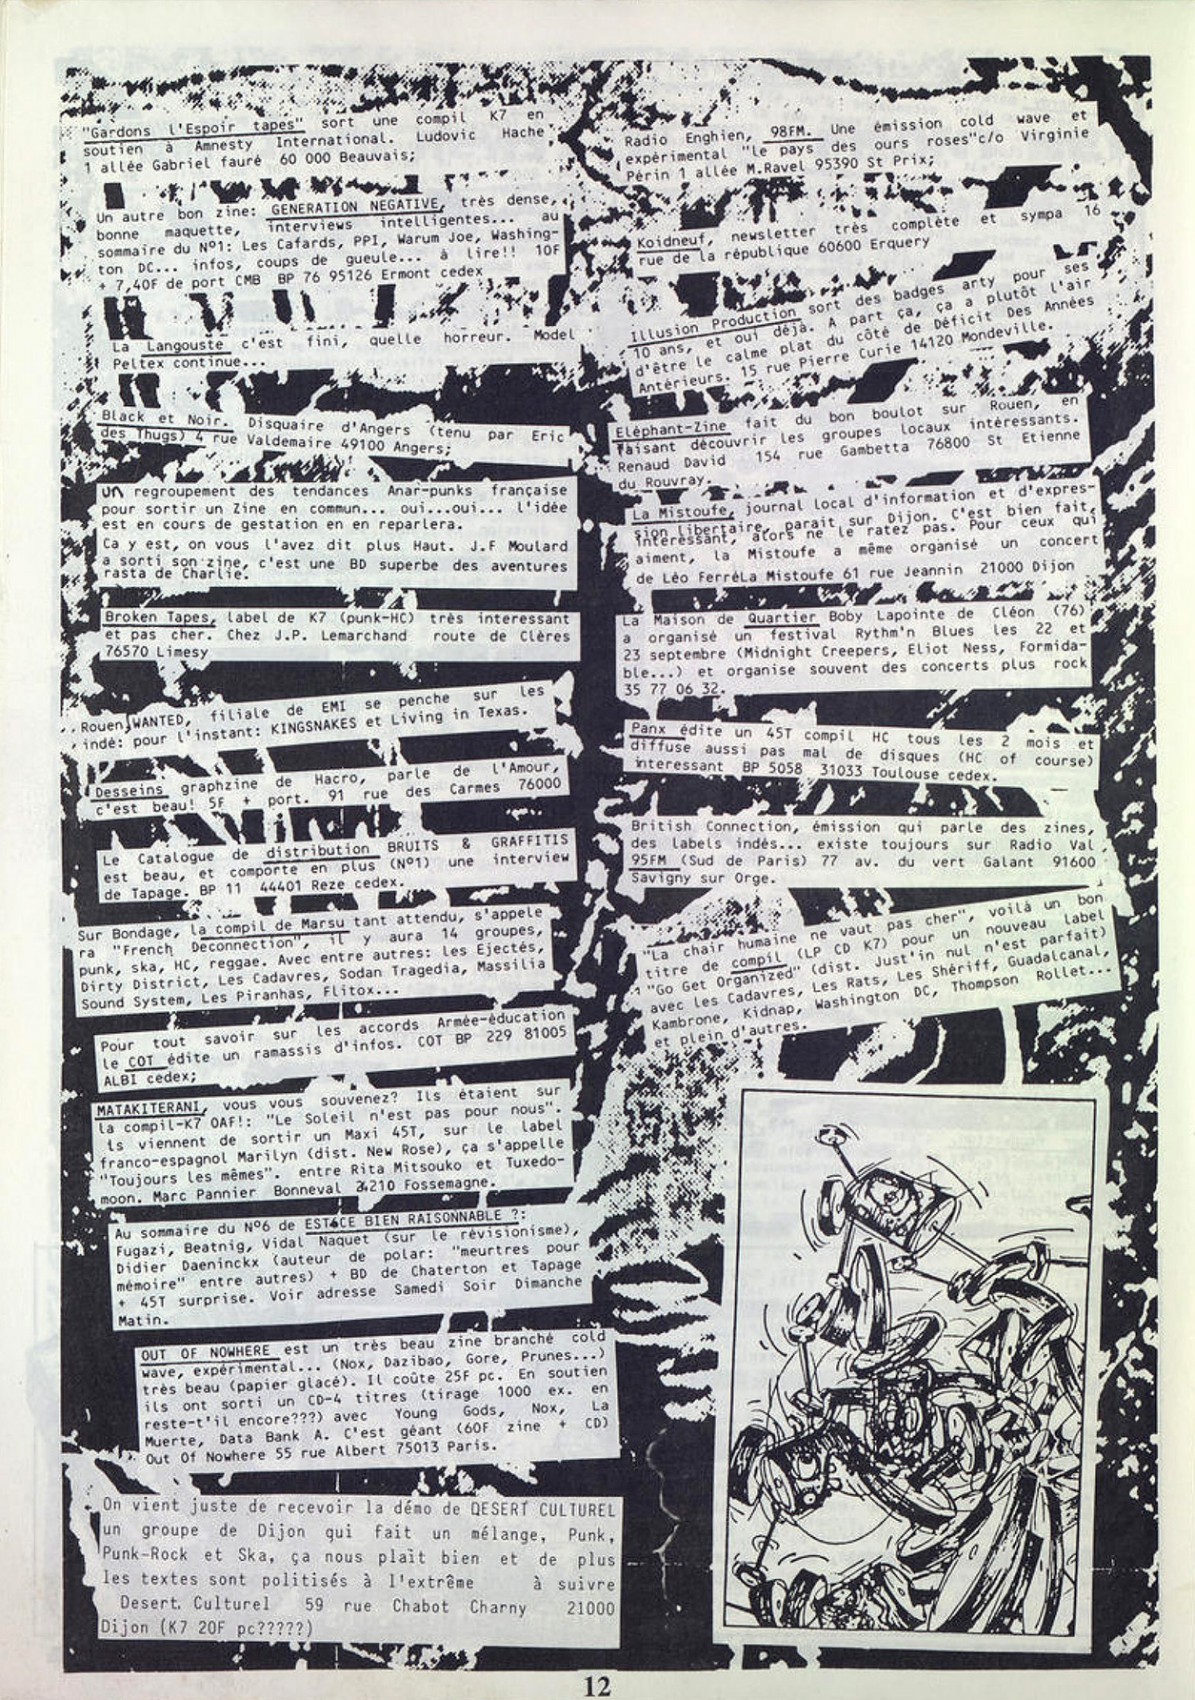 "Gardons l'Espoir tapes" sort une compil K7 en
soutien à Amnesty International. Ludovic Hache
1 allée Gabriel fauré 60 000 Beauvais;
Un autre bon zine: GENERATION NEGATIVE, très dense,
bonne maquette, interviews intelligentes... au
sommaire du Nº1: Les Cafards, PPI, Warum Joe, Washing-
ton DC... infos, coups de gueule... à lire!! 10F
+ 7,40F de port CMB BP 76 95126 Ermont cedex
La Langouste c'est fini, quelle horreur. Model
Peltex continue...
Black et Noir. Disquaire d'Angers (tenu par Eric
des Thugs) 4 rue Valdemaire 49100 Angers;
UN regroupement des tendances Anar-punks française
pour sortir un Zine en commun... oui...oui... l'idée
est en cours de gestation en en reparlera.
Ca y est, on vous l'avez dit plus Haut. J.F Moulard
a sorti son zine, c'est une BD superbe des aventures
rasta de Charlie.
Broken Tapes, label de K7 (punk-HC) très interessant
et pas cher. Chez J.P. Lemarchand route de Clères
76570 Limesy
Rouen,WANTED, filiale de EMI se penche sur les
indé: pour l'instant: KINGSNAKES et Living in Texas.
Desseins graphzine de Hacro, parle de l'Amour,
c'est beau! 5F + port. 91 rue des Carmes 76000
Le Catalogue de distribution BRUITS & GRAFFITIS
est beau, et comporte en plus (Nº1) une interview
de Tapage. BP 11 44401 Reze cedex.
Sur Bondage, la compil de Marsu tant attendu, s'appele
ra "French Deconnection", il y aura 14 groupes,
punk, ska, HC, reggae. Avec entre autres: les Ejectés,
Dirty District, Les Cadavres, Sodan Tragedia, Massilia
Sound System, Les Piranhas, Flitox...
Pour tout savoir sur les accords Armée-éducation
le COT édite un ramassis d'infos. COT BP 229 81005
ALBI cedex;
MATAKITERANI, vous vous souvenez? Ils étaient sur
la compil-K7 OAF!: "Le Soleil n'est pas pour nous".
ls viennent de sortir un Maxi 45T, sur le label
franco-espagnol Marilyn (dist. New Rose), ça s'appelle
"Toujours les mêmes". entre Rita Mitsouko et Tuxedo-
moon. Marc Pannier Bonneval 24210 Fossemagne.
Au sommaire du Nº6 de EST-CE BIEN RAISONNABLE ?:
Fugazi, Beatnig, Vidal Naquet (sur le révisionisme),
Didier Daeninckx (auteur de polar: "meurtres pour
mémoire" entre autres) + BD de Chaterton et Tapage
+ 45T surprise. Voir adresse Samedi Soir Dimanche
Matin.
OUT OF NOWHERE est un très beau zine branché cold
wave, expérimental... (Nox, Dazibao, Gore, Prunes...)
très beau (papier glacé). Il coûte 25F pc. En soutien
ils ont sorti un CD-4 titres (tirage 1000 ex. en
reste-t'il encore???) avec Young Gods, Nox, La
Muerte, Data Bank A. C'est géant (60F zine + CD)
Out Of Nowhere 55 rue Albert 75013 Paris.
On vient juste de recevoir la démo de DESERT CULTUREL
un groupe de Dijon qui fait un mélange, Punk,
Punk-Rock et Ska, ça nous plaît bien et de plus
les textes sont politisés à l'extrême à suivre
Desert. Culturel 59 rue Chabot Charny 21000
Dijon (K7 20F pc?????)
Radio Enghien, 98FM. Une émission cold wave et
expérimental "le pays des ours roses"c/o Virginie
Périn 1 allée M.Ravel 95390 St Prix;
Koidneuf, newsletter très complète et sympa 16
rue de la république 60600 Erquery
Illusion Production sort des badges arty pour ses
10 ans, et oui déjà. A part ça, ça a plutôt l'air
d'être le calme plat du côté de Déficit Des Années
Antérieurs. 15 rue Pierre Curie 14120 Mondeville.
Eléphant-Zine fait du bon boulot sur Rouen, en
faisant découvrir les groupes locaux intéressants.
Renaud David 154 rue Gambetta 76800 St Etienne
du Rouvray.
La Mistoufe, journal local d'information et d'expres-
sion libertaire, parait sur Dijon. C'est bien fait,
interessant, alors ne le ratez pas. Pour ceux qui
aiment, la Mistoufe a même organisé un concert
de Léo FerréLa Mistoufe 61 rue Jeannin 21000 Dijon
La Maison de Quartier Boby Lapointe de Cléon (76)
a organisé un festival Rythm'n Blues les 22 et
23 septembre (Midnight Creepers, Eliot Ness, Formida-
ble...) et organise souvent des concerts plus rock
35 77 06 32.
Panx édite un 45T compil HC tous les 2 mois et
diffuse aussi pas mal de disques (HC of course)
interessant BP 5058 31033 Toulouse cedex.
British Connection, émission qui parle des zines,
des labels indés... existe toujours sur Radio Val
95FM (Sud de Paris) 77 av. du vert Galant 91600
Savigny sur Orge.
"La chair humaine ne vaut pas cher", voilà un bon
titre de compil (LP CD K7) pour un nouveau label
"Go Get Organized" (dist. Just'in nul n'est parfait)
avec les Cadavres, Les Rats, Les Shériff, Guadalcanal,
Kambrone, Kidnap, Washington DC, Thompson Rollet...
et plein d'autres.
12